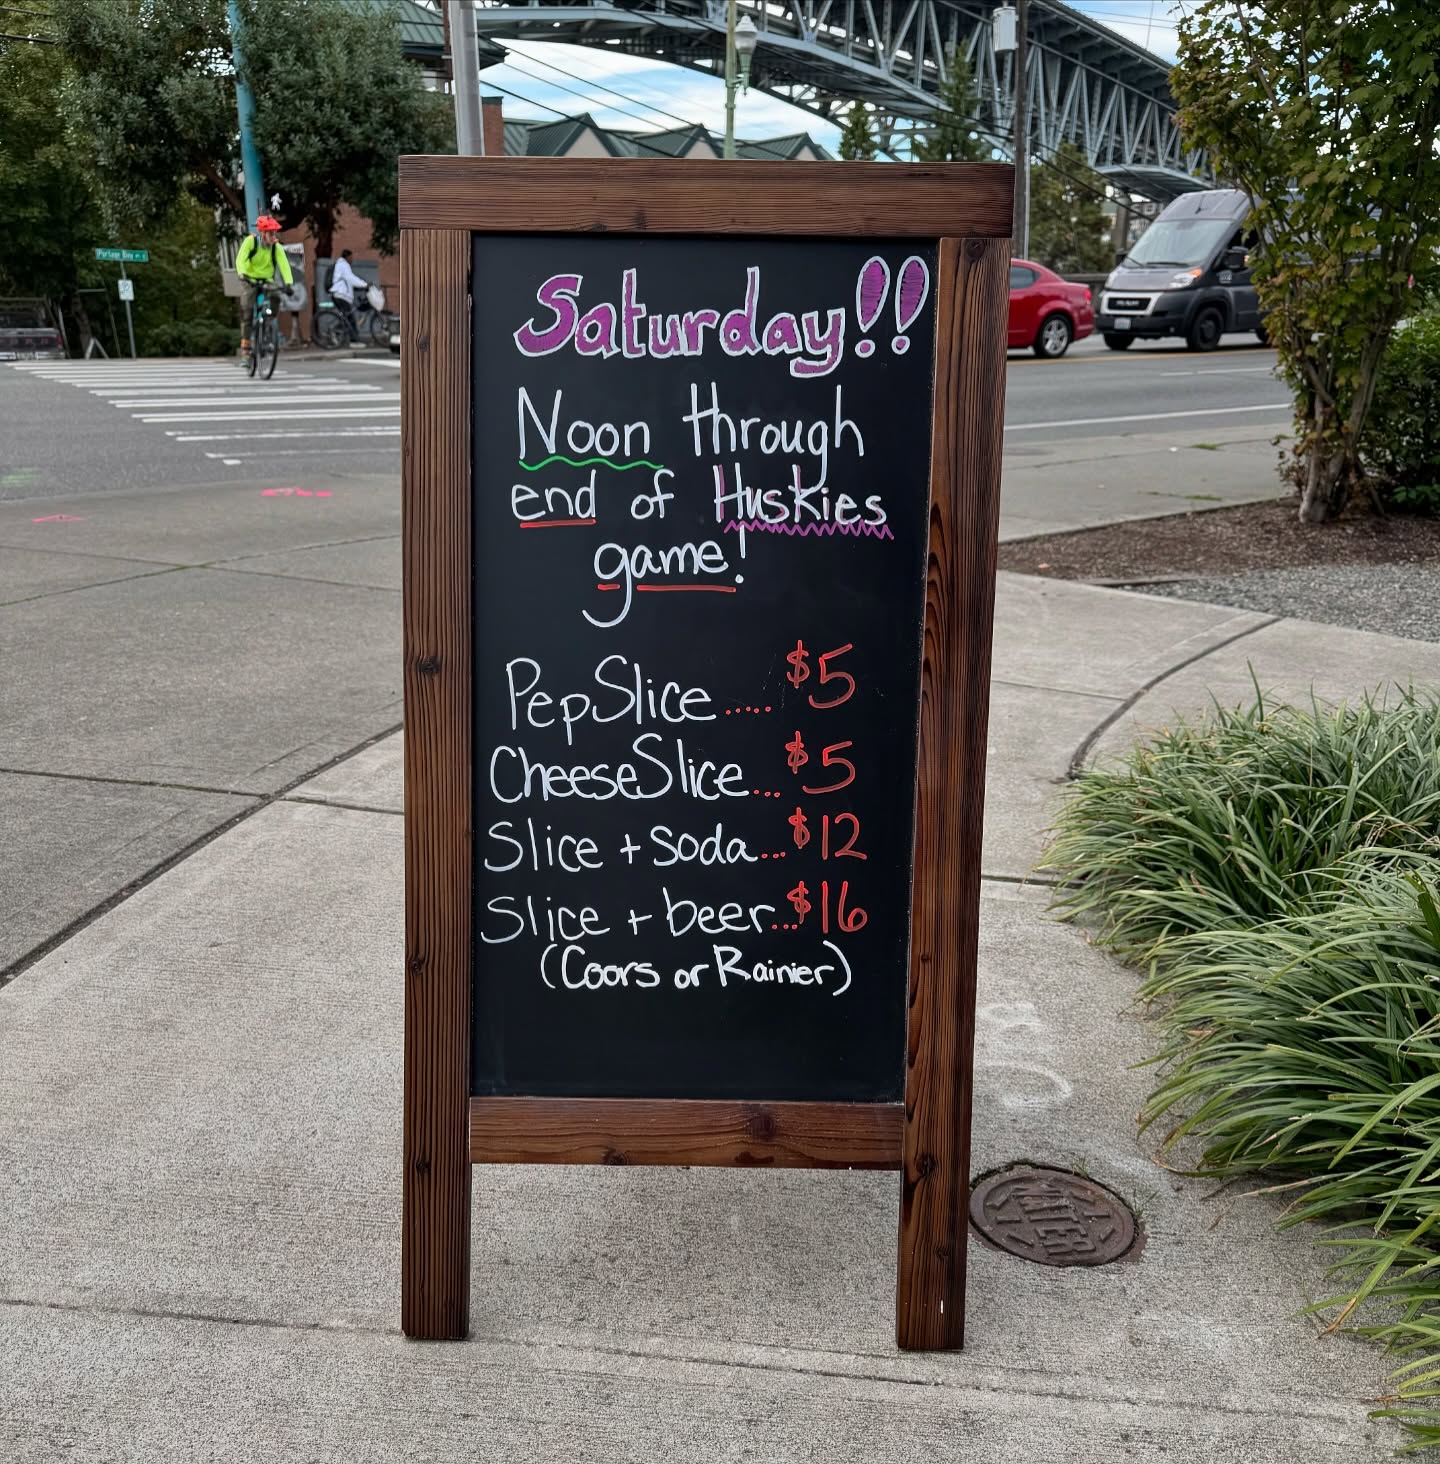 Saturday!!
Noon through
end of Huskies
game!
Pep Slice..... $5
Cheese Slice... $5
Slice + soda... $12
Slice + beer... $16
(Coors or Rainier)
WATER